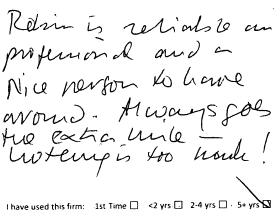 Robin is reliable and
professional and a
Nice person to have
around. Always goes
the extra mile –
nothing is too much!
I have used this firm: 1st Time ☐ <2 yrs ☐ 2-4 yrs ☐ · 5+ yrs ☒